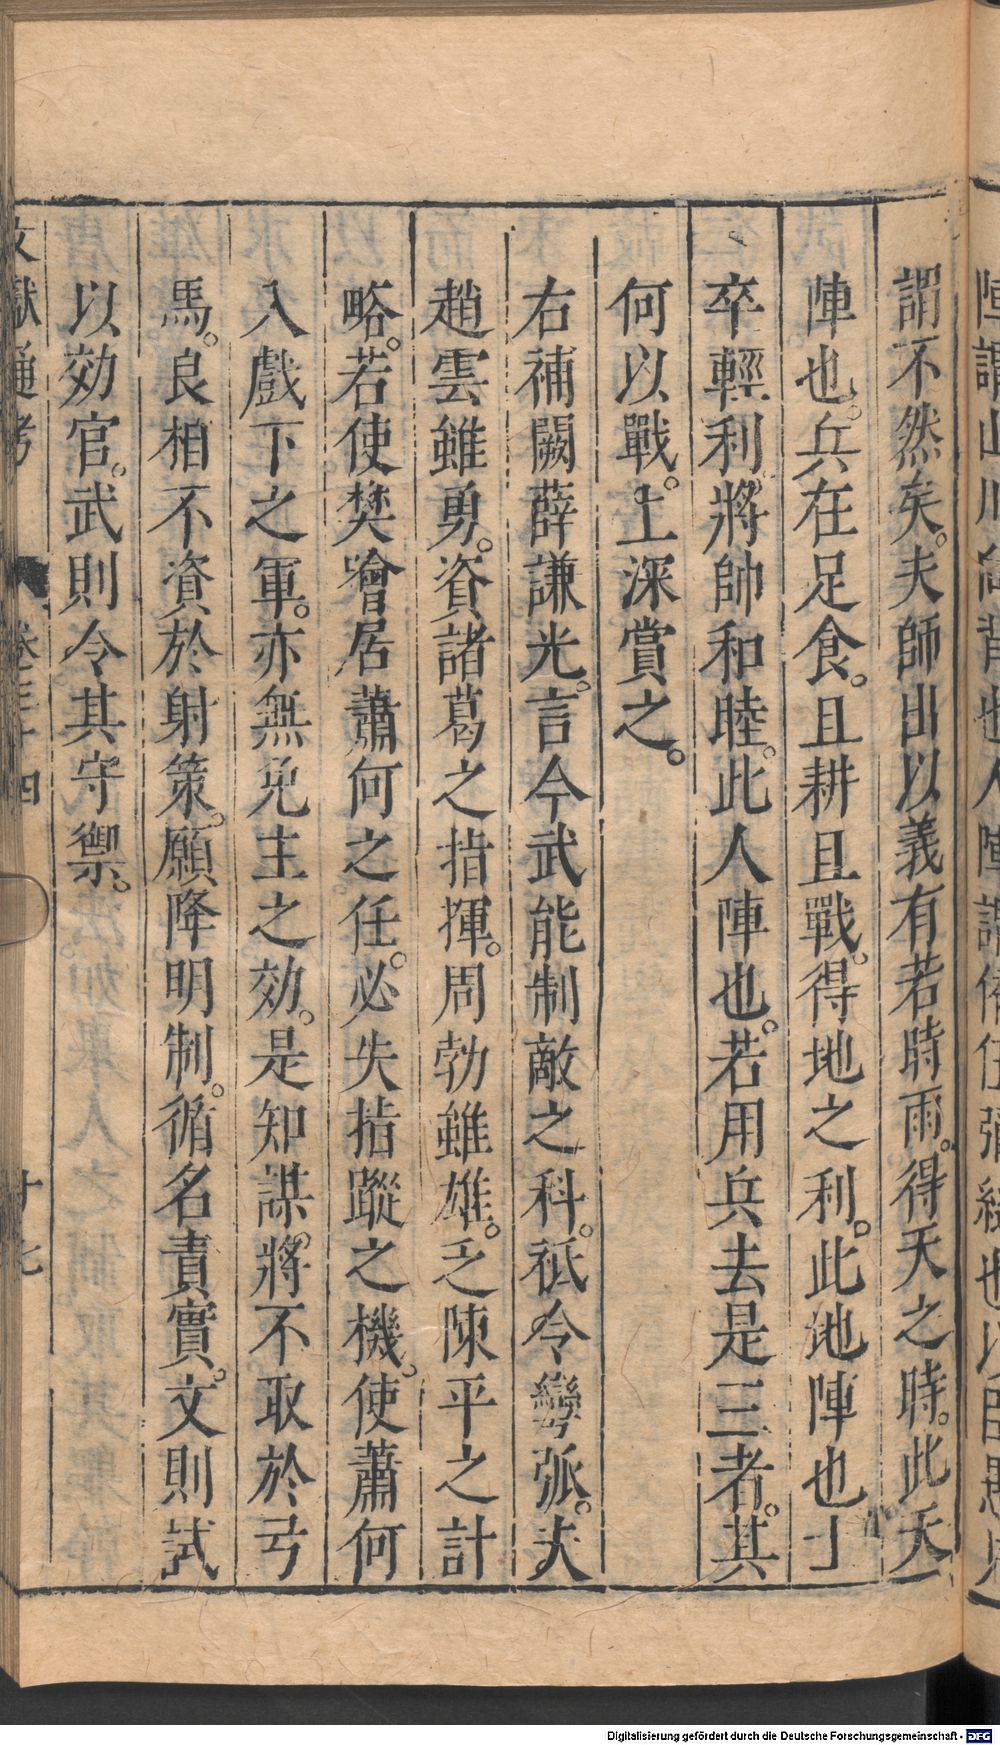 陣謂山川向背也人陣謂偏伍彌縫也以臣愚見
謂不然矣。夫師出以義有若時雨。得天之時。此天
陣也。兵在足食。且耕且戰。得地之利。此地陣也士
卒輕利。將帥和睦。此人陣也。若用兵去是三者。其
何以戰。上深賞之。
右補闕薛謙光。言今武能制敵之科。祇令彎弧。夫
趙雲雖勇。資諸葛之指揮。周勃雖雄。乏陳平之計
略。若使樊噲居蕭何之任。必失指蹤之機。使蕭何
入戲下之軍。亦無免主之効。是知謀將不取於弓
馬。良相不資於射策。願降明制。循名責實。文則試
以効官。武則令其守禦。
文獻通考 卷三十四 十七
Digitalisierung gefördert durch die Deutsche Forschungsgemeinschaft - DFG